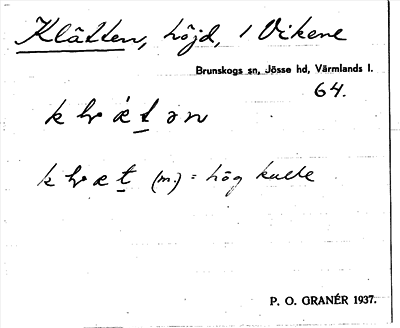 Klätten, höjd, 1 Vikene
Brunskogs sn, Jösse hd, Värmlands l.
64.
(m.) = hög kulle
P. O. GRANÉR 1937.